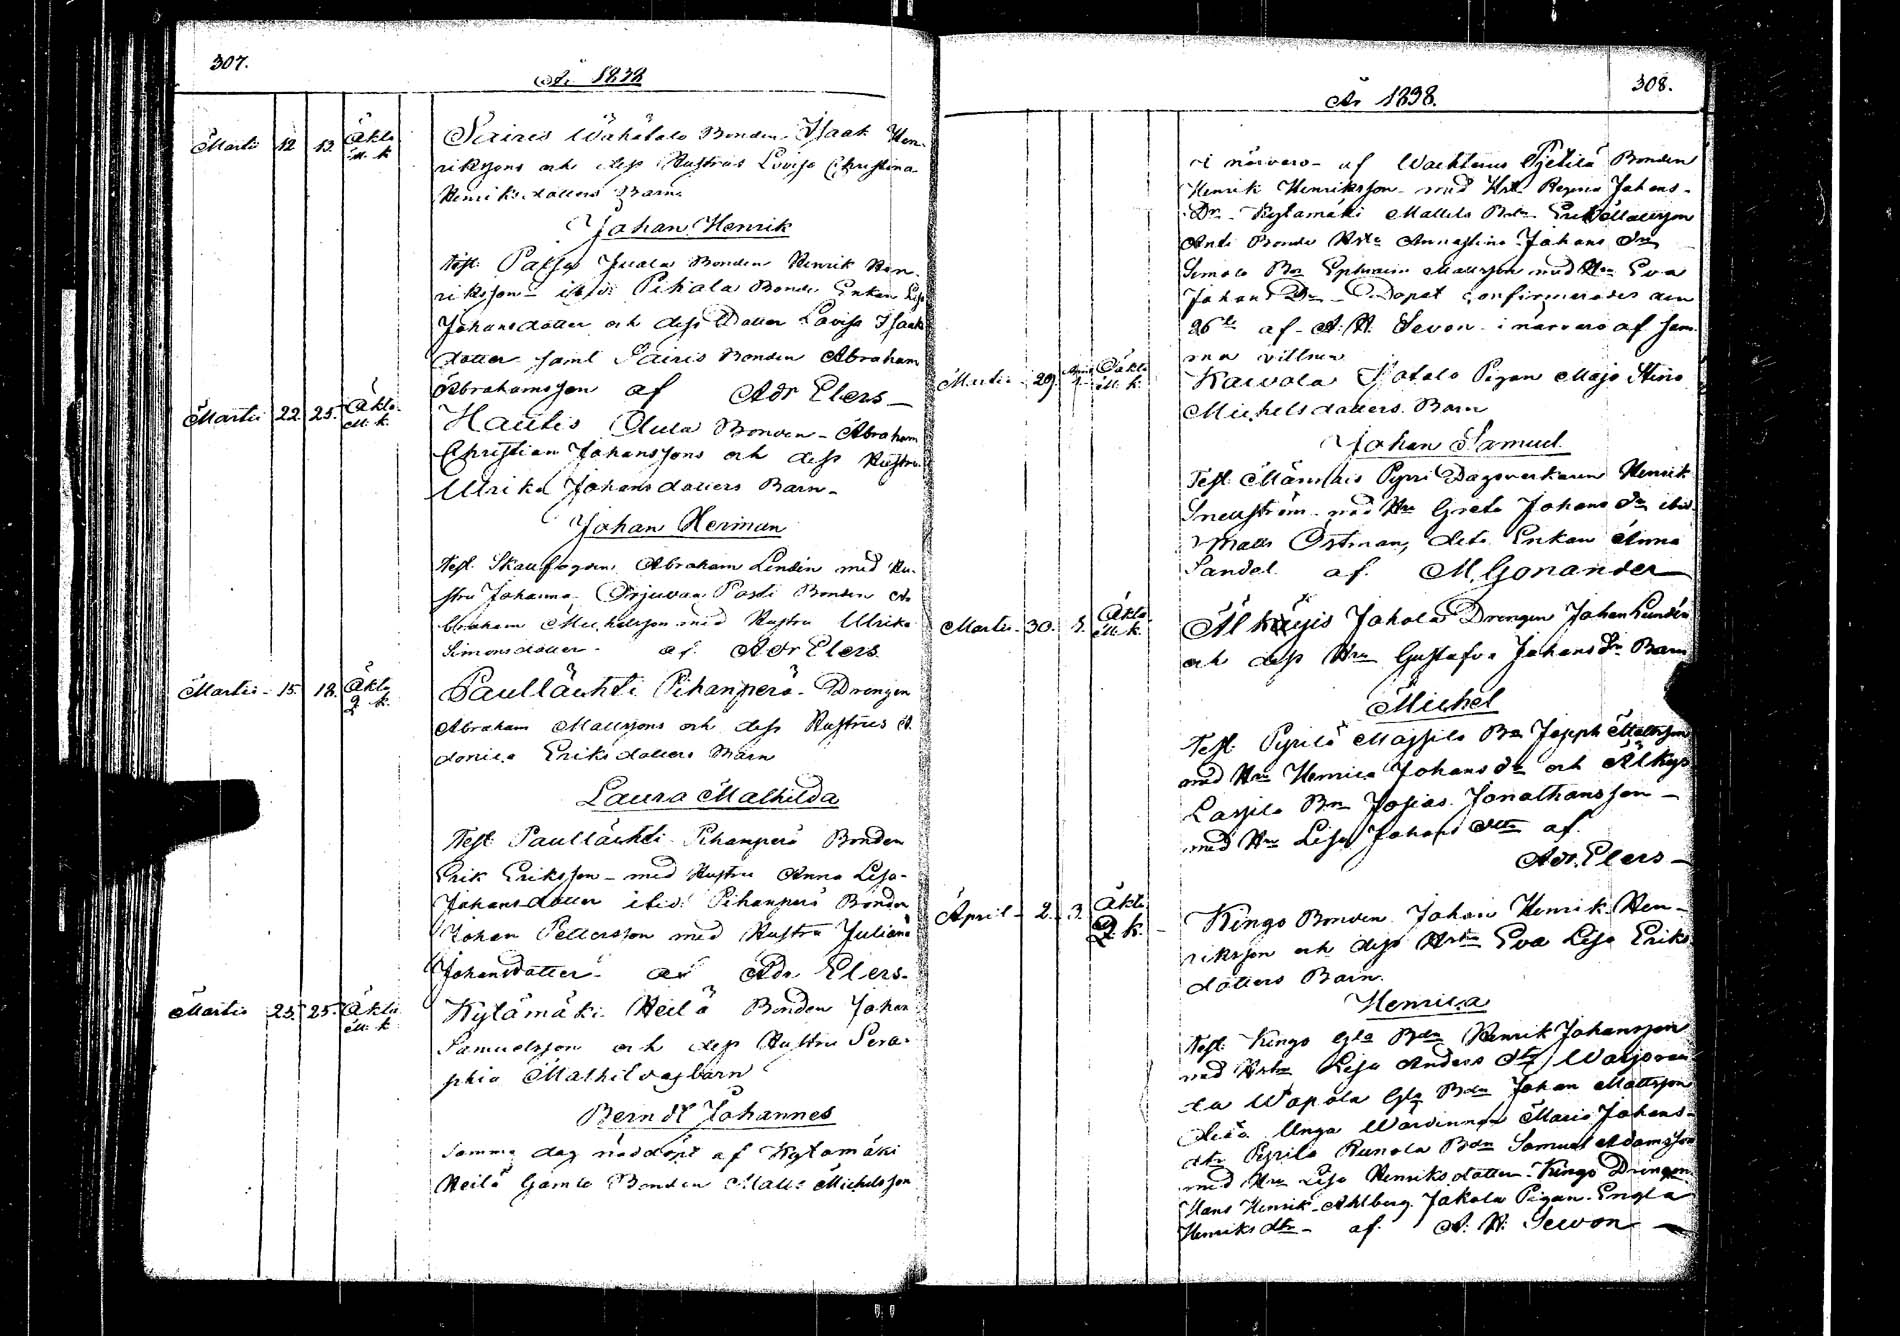 307.
År 1838
Martii 12 13. Äkta m. k. Sairis Wähätalo Bonden Isaak Hen-
rikssons och dess Hustrus Lovisa Christina
Henriksdotters Barn
Johan Henrik
Test: Juvala Bonden Henrik Hen-
riksson ibid: Pihala Bonde Enkan Lisa
Johansdotter och dess Dotter Lovisa Isaaks
dotter samt Sairis Bonden Abraham
Abrahamsson af Adr Elers
Martii 22. 25. Äkta m. k. Hautis Bonden Abraham
Christian Johanssons och dess Hustru
Ulrika Johansdotters Barn
Johan Herman
Test. Abraham Lindén med Hu-
stru Johanna Orjuvaa Posti Bonden A-
braham Michelsson med Hustru Ulrika
Simonsdotter af Adr Elers
Martii 15. 18. Äkta Q k. Paullähti Pihanperä Drengen
Abraham Mattssons och dess Hustrus A
donica Eriksdotters Barn
Laura Mathilda
Test Paullähti Pihanperä Bonden
Erik Eriksson med Hustru Anna Lisa
Johansdotter ibid: Pihanperä Bonden
Johan Pettersson med Hustru Juliana
Johansdotter af Adr Elers
Martii 25. 25. Äkta m. k. Kylämäki Heilä Bonden Johan
Samuelsson och dess Hustru Sera-
phia Mathildas barn
Berndt Johannes
Samma dag nöddöpt af Kylämäki
Heilä Gamla Bonden Matts Michelsson
År 1838. 308.
i närvaro af Bonden
Henrik Henriksson med Hstr Regina Johans-
Dr Kylämäki Mattila Bdn Erik Mattsson
Bonde Hstr Annastina Johans Dr
Simola Bdn Ephraim Mattsson med Hstr Eva
Johans Dr Dopet confirmerades den
26te af A. H. Sevon i närvaro af sam-
ma vittnen
Martii 29. April 1 Oäkta m. k. Kaivola Pigan Maja Stina
Michelsdotters Barn
Johan Samuel
Test. Männäis Pyrri Dagsverkaren Henrik
med Hru Greta Johans dr ibid.
Matts Östman, dito Enkan Anna
Sandal af M. Gonander
Martii 30. Äkta m. k. Alkäyis Jakola Drengen Johan Lundén
och dess Hru Gustafva Johans Dr Barn
Michel
Test: Pyrilä Massila Bdn Joseph Mattsson
med Hru Henrica Johans dr och Alkys
Lassila Bdn Josias Jonathansson
med Hru Lisa Johans dttr af
Adr. Elers
April 2. 3. Äkta Q. k. Kingo Bonden Johan Henrik Hen-
riksson och dess Hstru Eva Lisa Eriks
dotters Barn.
Henrica
Test. Kingo Gla Bdn Henrik Johansson
med Hstru Lisa Anders dtr
Wapola Gla Bdn Johan Mattsson
dito Unga Wärdinnan Maria Johans-
dtr Pyrilä Runola Bdn Samuel Adamsson
med Hru Lisa Henriksdotter Kingo Drengen
Hans Henrik Ahlberg Jakola Pigan Engla
Henriks dtr af A. H. Sewon